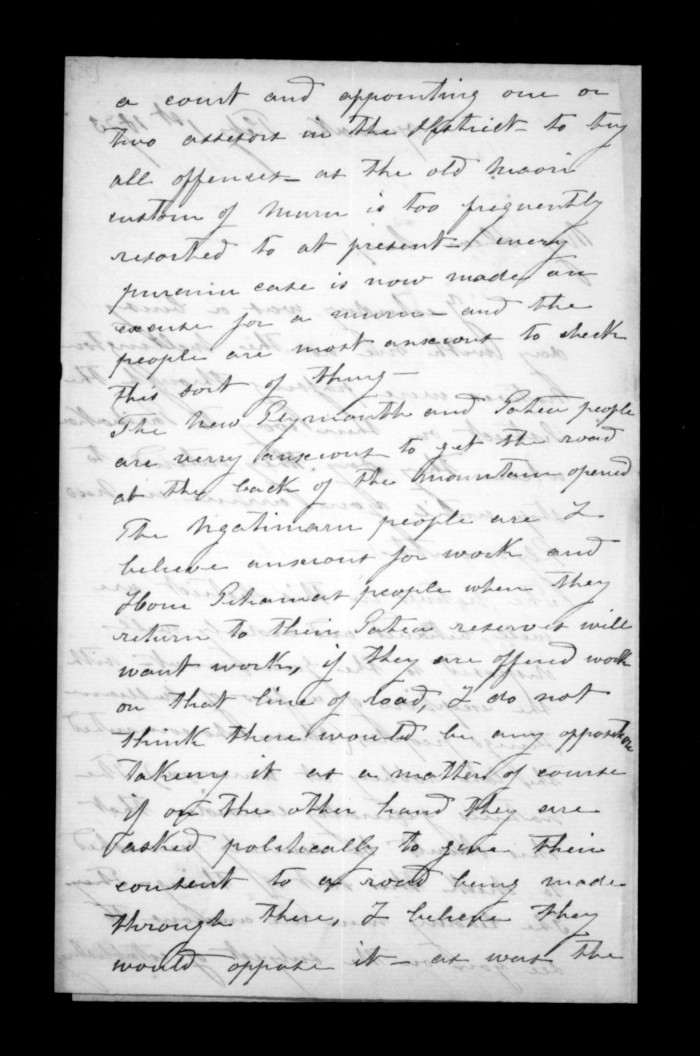 a court and appointing one or
two assessors in the district to try
all offenses - as the old Maori
custom of muru is too frequently
resorted to at present - every
puremu case is now made an
excuse for a muru - and the
people are most anxious to check
this sort of thing -
The New Plymouth and Patea people
are very anxious to get the road
at the back of the mountain opened
The Ngatimaru people are I
believe anxious for work and
Hone Pihamas people when they
return to their Patea reserves will
want work, if they are offered work
on that line of road, I do not
think there would be any opposition
taking it as a matter of course
if on the other hand they are
asked politically to give their
consent to a road being made
through there, I believe they
would oppose it - as was the